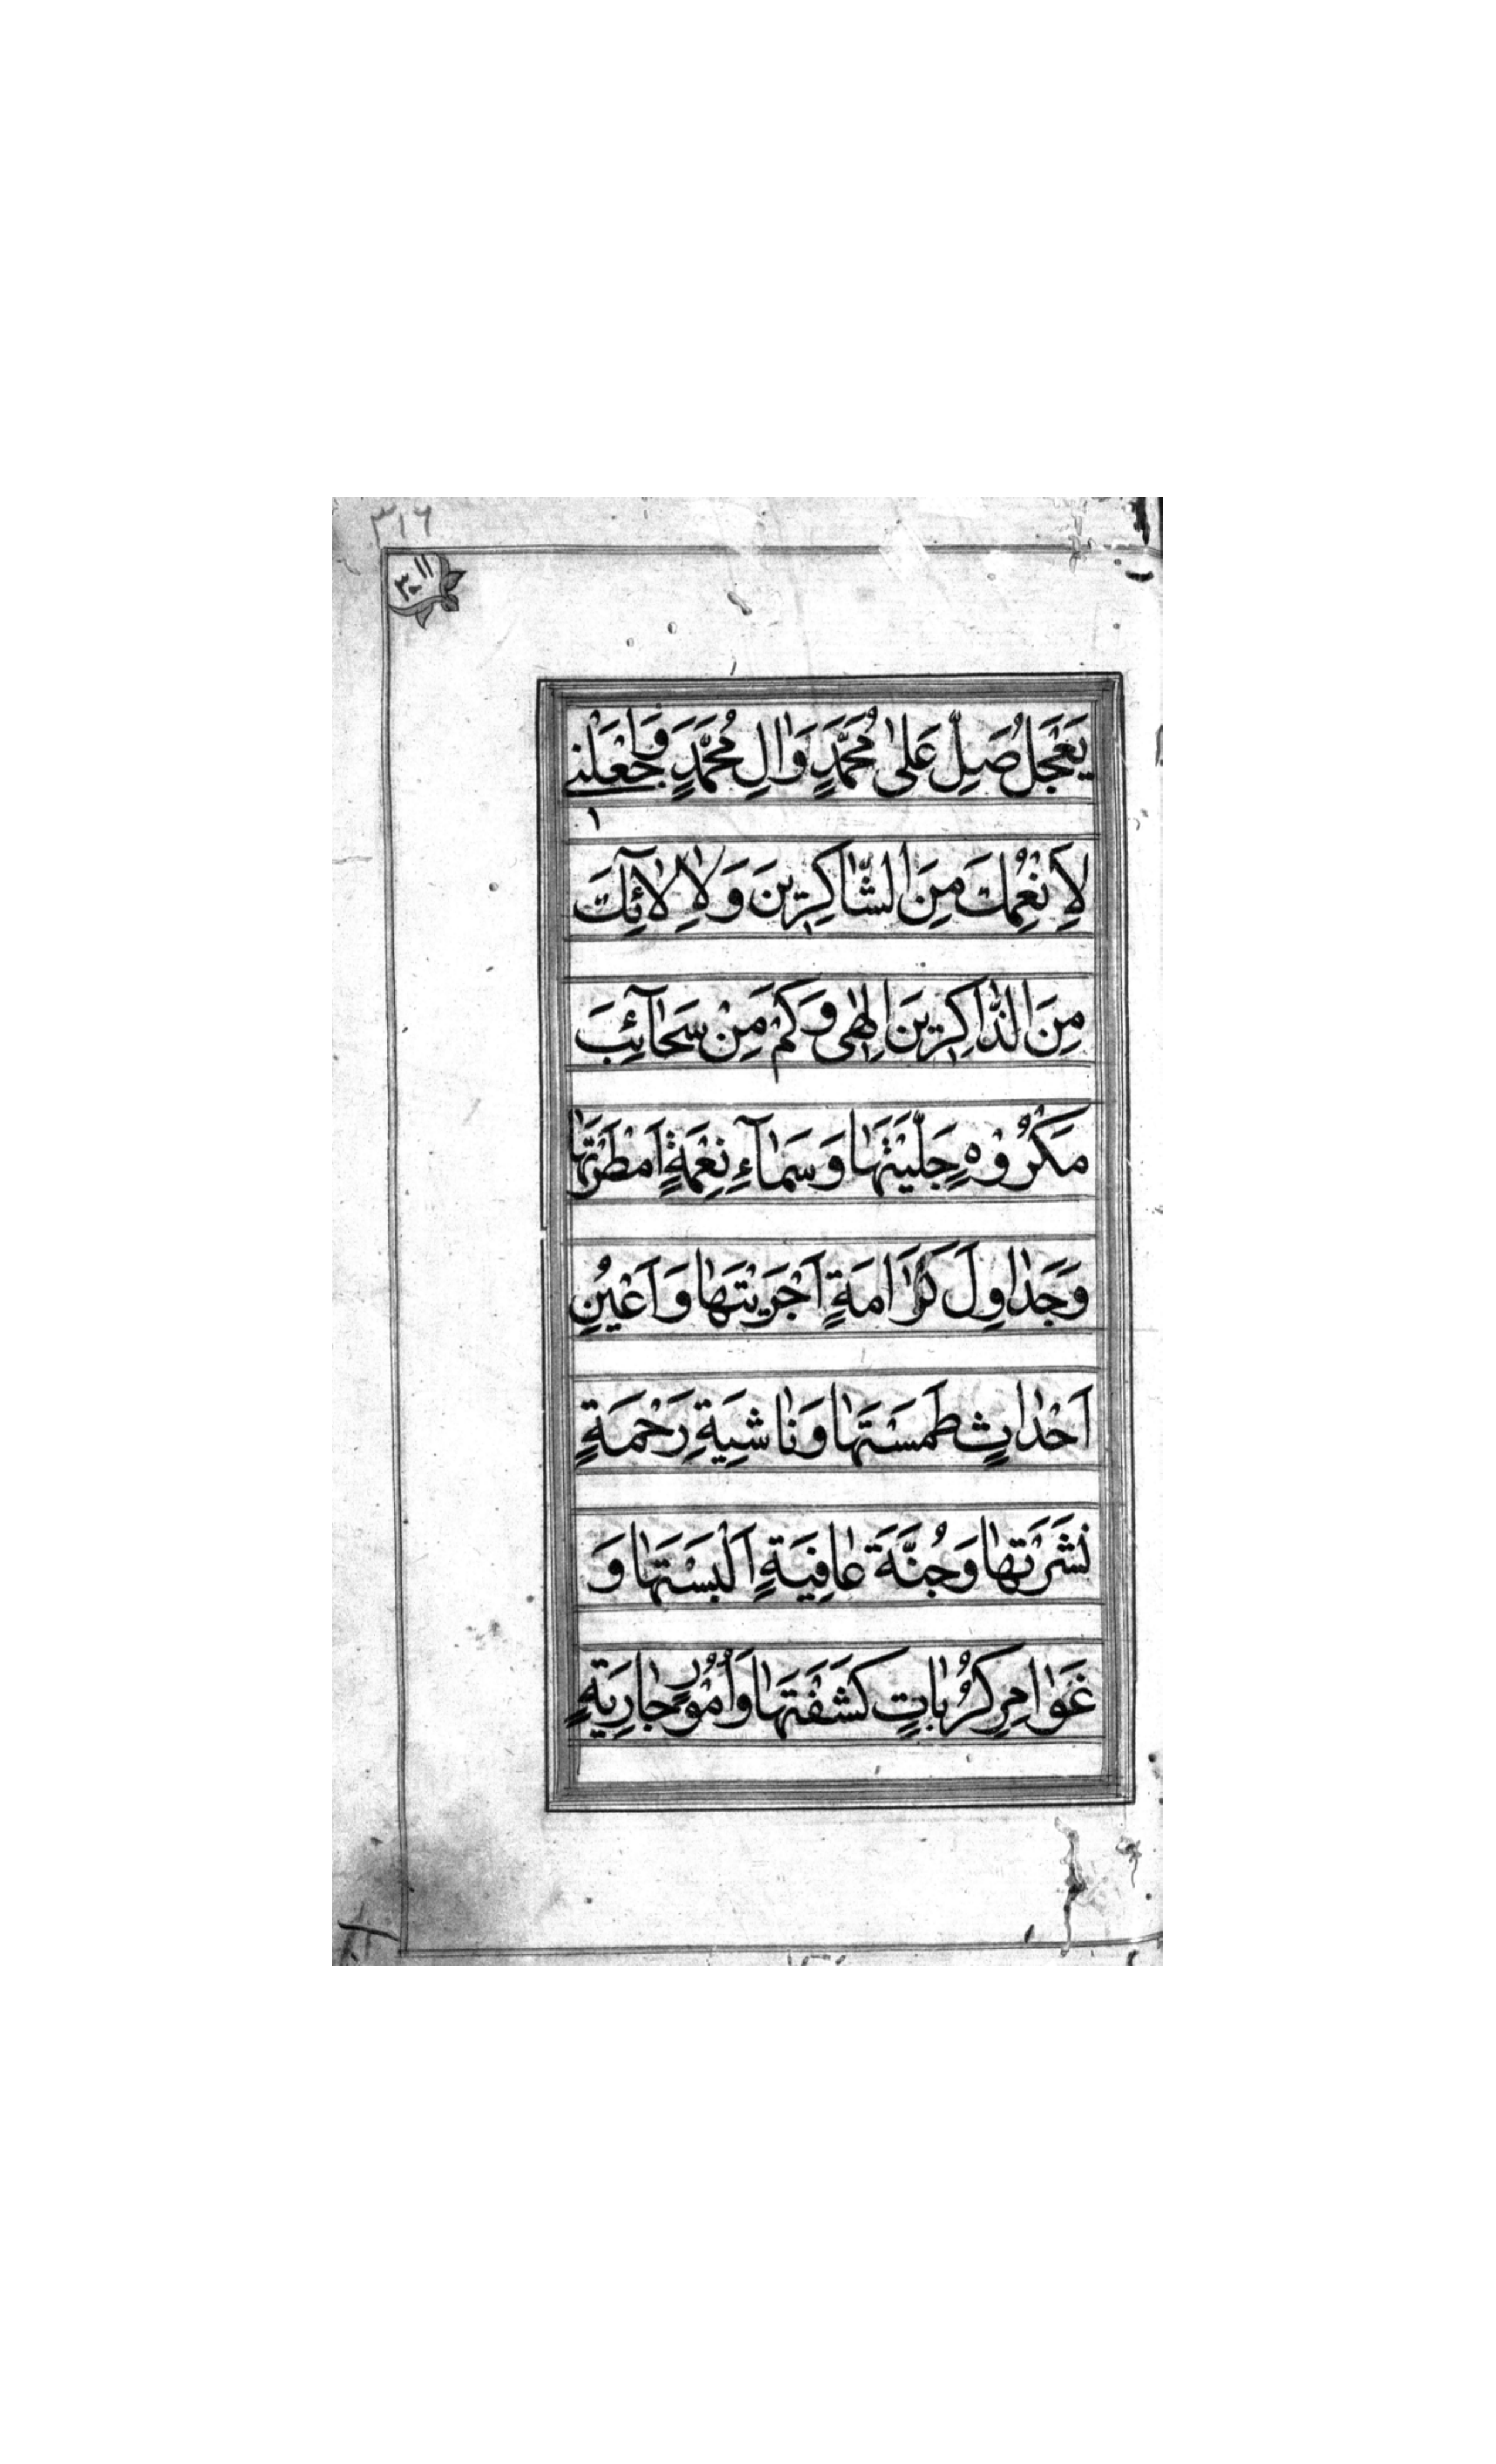 ٣١٦
يَعْجَلُ صَلِّ عَلىٰ مُحَمَّدٍ وَاٰلِ مُحَمَّدٍ وَاجْعَلْنِي
لِاَنْعُمِكَ مِنَ الشّٰاكِرِينَ وَلِاٰلٰائِكَ
مِنَ الذّٰاكِرِينَ اِلٰهِى وَكَمْ مِنْ سَحٰٓائِبَ
مَكْرُوْهٍ جَلَّيْتَهٰا وَسَمٰٓاءِ نِعْمَةٍ اَمْطَرْتَهٰا
وَجَدٰاوِلَ كَرٰامَةٍ اَجْرَيْتَهٰا وَاَعْيُنِ
اَحْدٰاثٍ طَمَسْتَهٰا وَنٰاشِيَةِ رَحْمَةٍ
نَشَرْتَهٰا وَجُنَّةَ عٰافِيَةٍ اَلْبَسْتَهٰا وَ
غَوٰامِرِ كُرُبٰاتٍ كَشَفْتَهٰا وَاُمُوْرٍ جٰارِيَةٍ